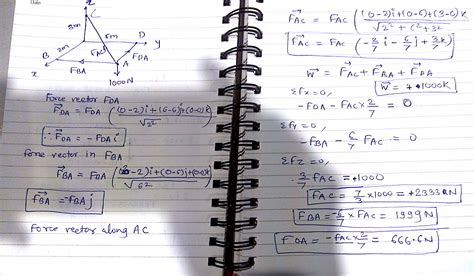 z
C
3m
6m
D
y
B
2m
FAC
FDA
x
FBA
A
1000N
Force vector FDA
FDA = FDA ((0-2)i+(6-6)j+(0-0)k / √2²)
∴ FDA = -FDA i
Force vector in FBA
FBA = FDA ((2-2)i+(0-6)j+(0-0)k / √6²)
FBA = -FBA j
Force vector along AC
FAC = FAC ((0-2)i+(0-6)j+(3-0)k / √2²+6²+3²
FAC = FAC (-2/7 i - 6/7 j + 3/7 k)
W = FAC + FBA + FDA
W = 1000K
ΣFx=0,
-FDA - FAC×2/7 = 0
ΣFy=0,
-FBA - 6/7 FAC = 0
ΣFZ=0,
3/7 FAC = +1000
FAC = 7/3 ×1000 = +2333N
FBA = -6/7 × FAC = 1999N
FDA = -FAC×2/7 = 666.6N